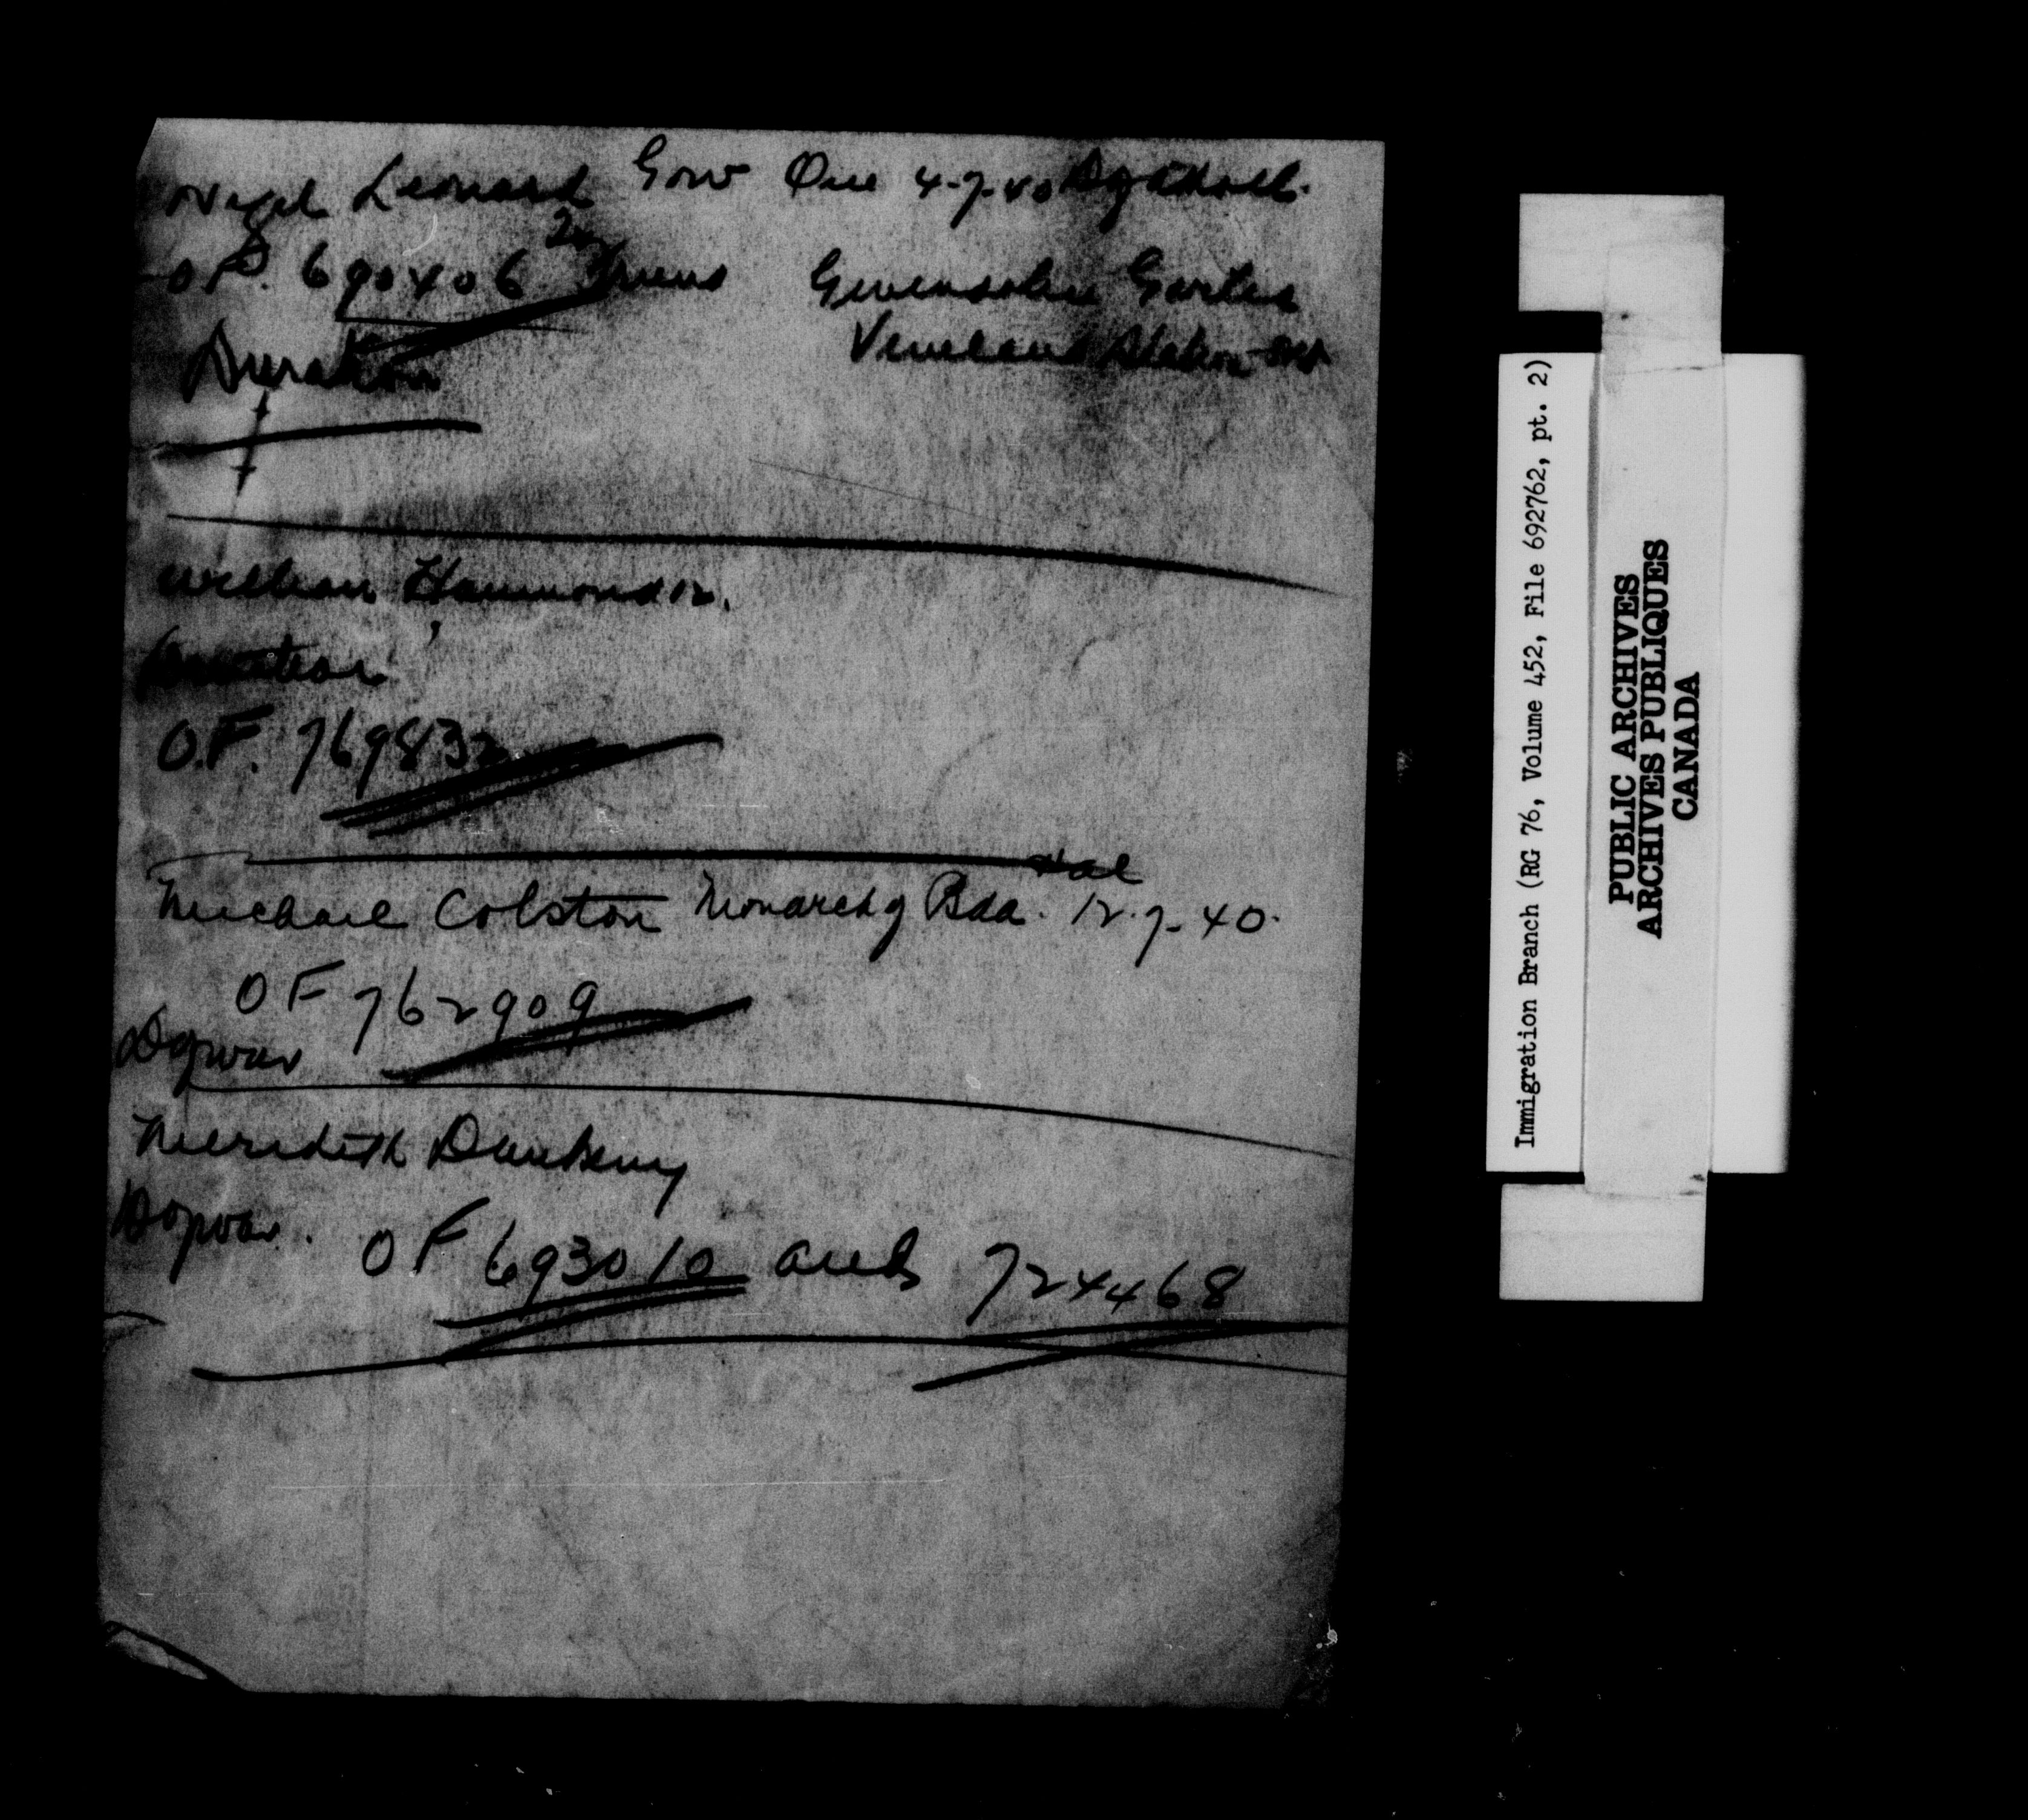 Nigel Leonard Gow Que 4-7-40 Dg Atholl.
O.F. 690406 2 yrs Gwendolen Garten
Duration Vineland Station Ont
William Hammond 12.
Duration
O.F. 769832
Hal
Michael Colston Monarch of Bda. 12-7-40.
OF 762909
Dopwar
Meredith Daubeny
Dopwar. OF 693010 and 724468
Immigration Branch (RG 76, Volume 452, File 692762, pt. 2)
PUBLIC ARCHIVES
ARCHIVES PUBLIQUES
CANADA